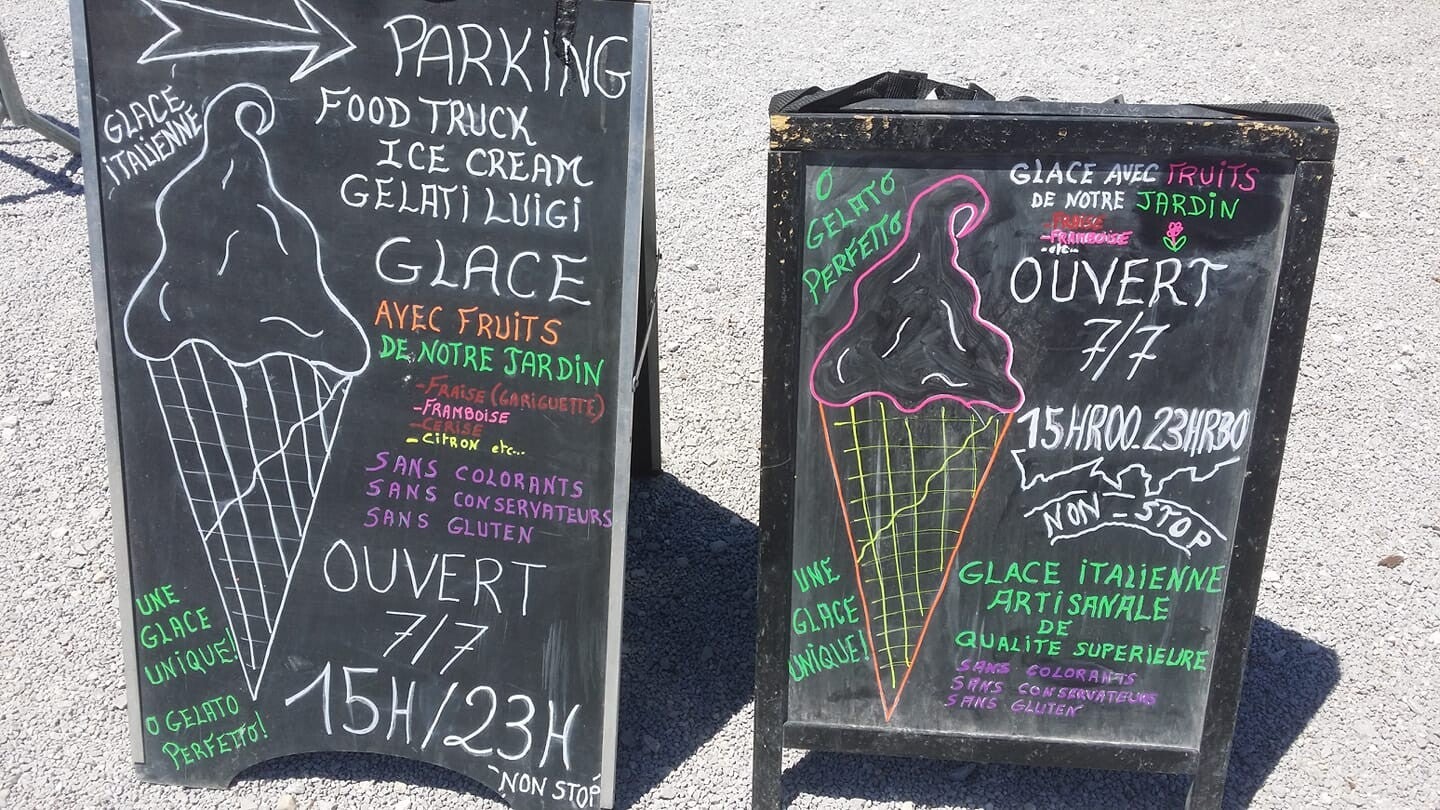 PARKING
GLACE
ITALIENNE
FOOD TRUCK
ICE CREAM
GELATI LUIGI
GLACE
AVEC FRUITS
DE NOTRE JARDIN
-FRAISE (GARIGUETTE)
-FRAMBOISE
-CERISE
-CITRON etc...
SANS COLORANTS
SANS CONSERVATEURS
SANS GLUTEN
OUVERT
7/7
15H/23H
-NON STOP
UNE
GLACE
UNIQUE!
O GELATO
PERFETTO!
O
GELATO
PERFETTO
GLACE AVEC FRUITS
DE NOTRE JARDIN
-FRAISE
-FRAMBOISE
-etc...
OUVERT
7/7
15HR00.23HR30
NON-STOP
UNE
GLACE
UNIQUE!
GLACE ITALIENNE
ARTISANALE
DE
QUALITE SUPERIEURE
SANS COLORANTS
SANS CONSERVATEURS
SANS GLUTEN